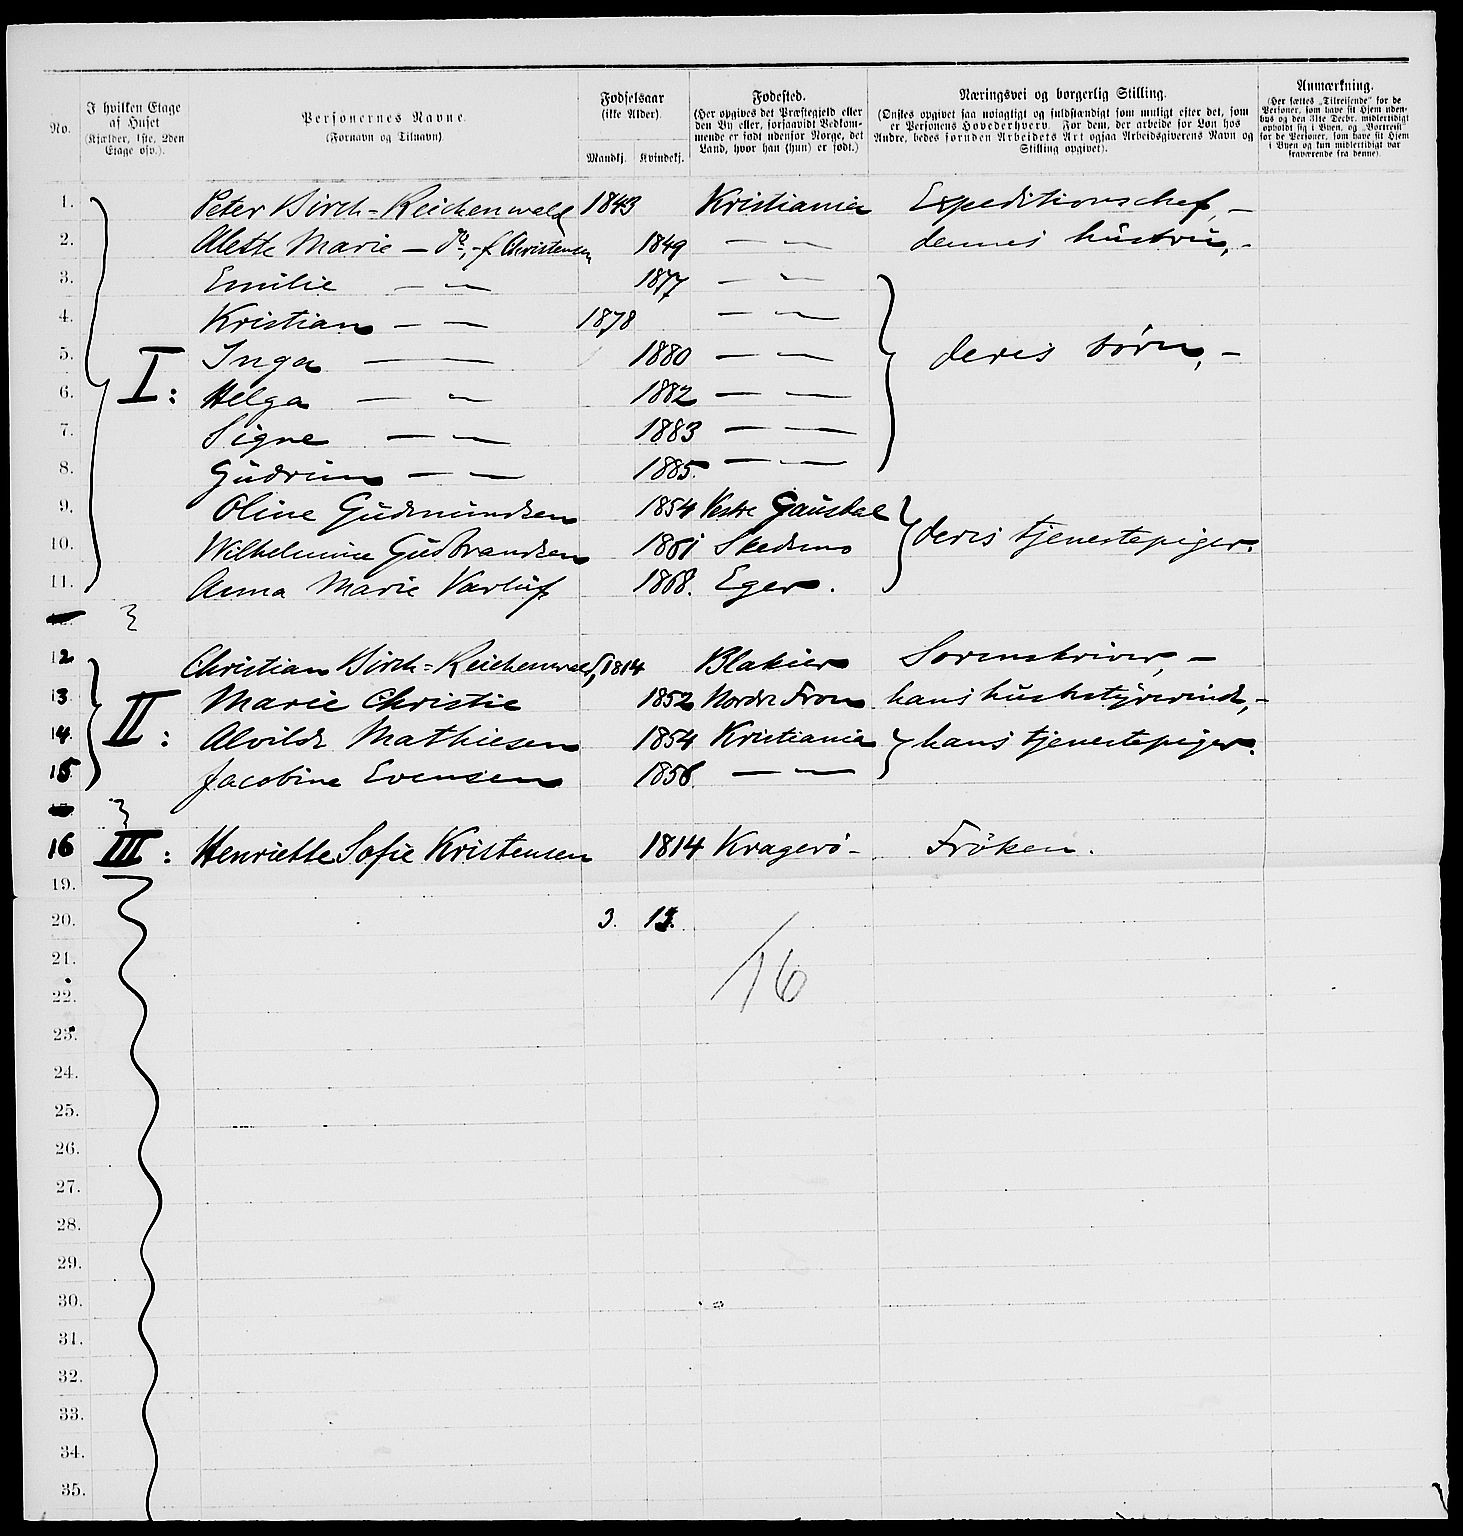 No.
I hvilken Etage af Huset (Kjælder, 1ste, 2den Etage osv.).
Personernes Navne. (Fornavn og Tilnavn).
Fødselsaar (ikke Alder).
Mandkj. Kvindekj.
Fødested. (Her opgives det Præstegjeld eller den By eller, forsaavidt Vedkommende er født udenfor Norge, det Land, hvor han (hun) er født.)
Næringsvei og borgerlig Stilling. (Ønskes opgivet saa nøiagtigt og fuldstændigt som muligt efter det, som er Personens Hovederhverv. For dem, der arbeide for Løn hos Andre, bedes foruden Arbeidets Art ogsaa Arbeidsgiverens Navn og Stilling opgivet).
Anmærkning. (Her sættes „Tilreisende" for de Personer, som have sit Hjem udenbys og den 31te Decbr. midlertidigt opholdt sig i Byen, og „Bortreist" for de Personer, som have sit Hjem i Byen og kun midlertidigt var fraværende fra denne).
1. Peter Birch-Reichenwald 1843 Kristiania Expeditionschef, –
2. Alette Marie – do, – f Christensen 1849 — — dennes hustru, –
3. Emilie — — 1877 — —
4. Kristian — — 1878 — —
I:
5. Inga — — 1880 — — deres børn, –
6. Helga — — 1882 — —
7. Signe — — 1883 — —
8. Gudrun — — 1885. — —
9. Oline Gudmundsen 1854 Vestre Gausdal
10. Wilhelmine Gudbrandsen 1861 Skedsmo deres tjenestepiger.
11. Anna Marie Varluf 1868. Eger.
12 Christian Birch-Reichenwald, 1814 Blakier Sorenskriver, –
13. Marie Christie 1852 Nordre Fron hans husbestyrerinde, –
II:
14. Alvilde Mathiesen 1854 Kristiania hans tjenestepiger.
15 Jacobine Evensen 1856. — —
16 III: Henriette Sofie Kristensen 1814 Kragerö – Fröken.
19.
20. 3. 13.
21.
16
22.
23.
24.
25.
26.
27.
28.
29.
30.
31.
32.
33.
34.
35.